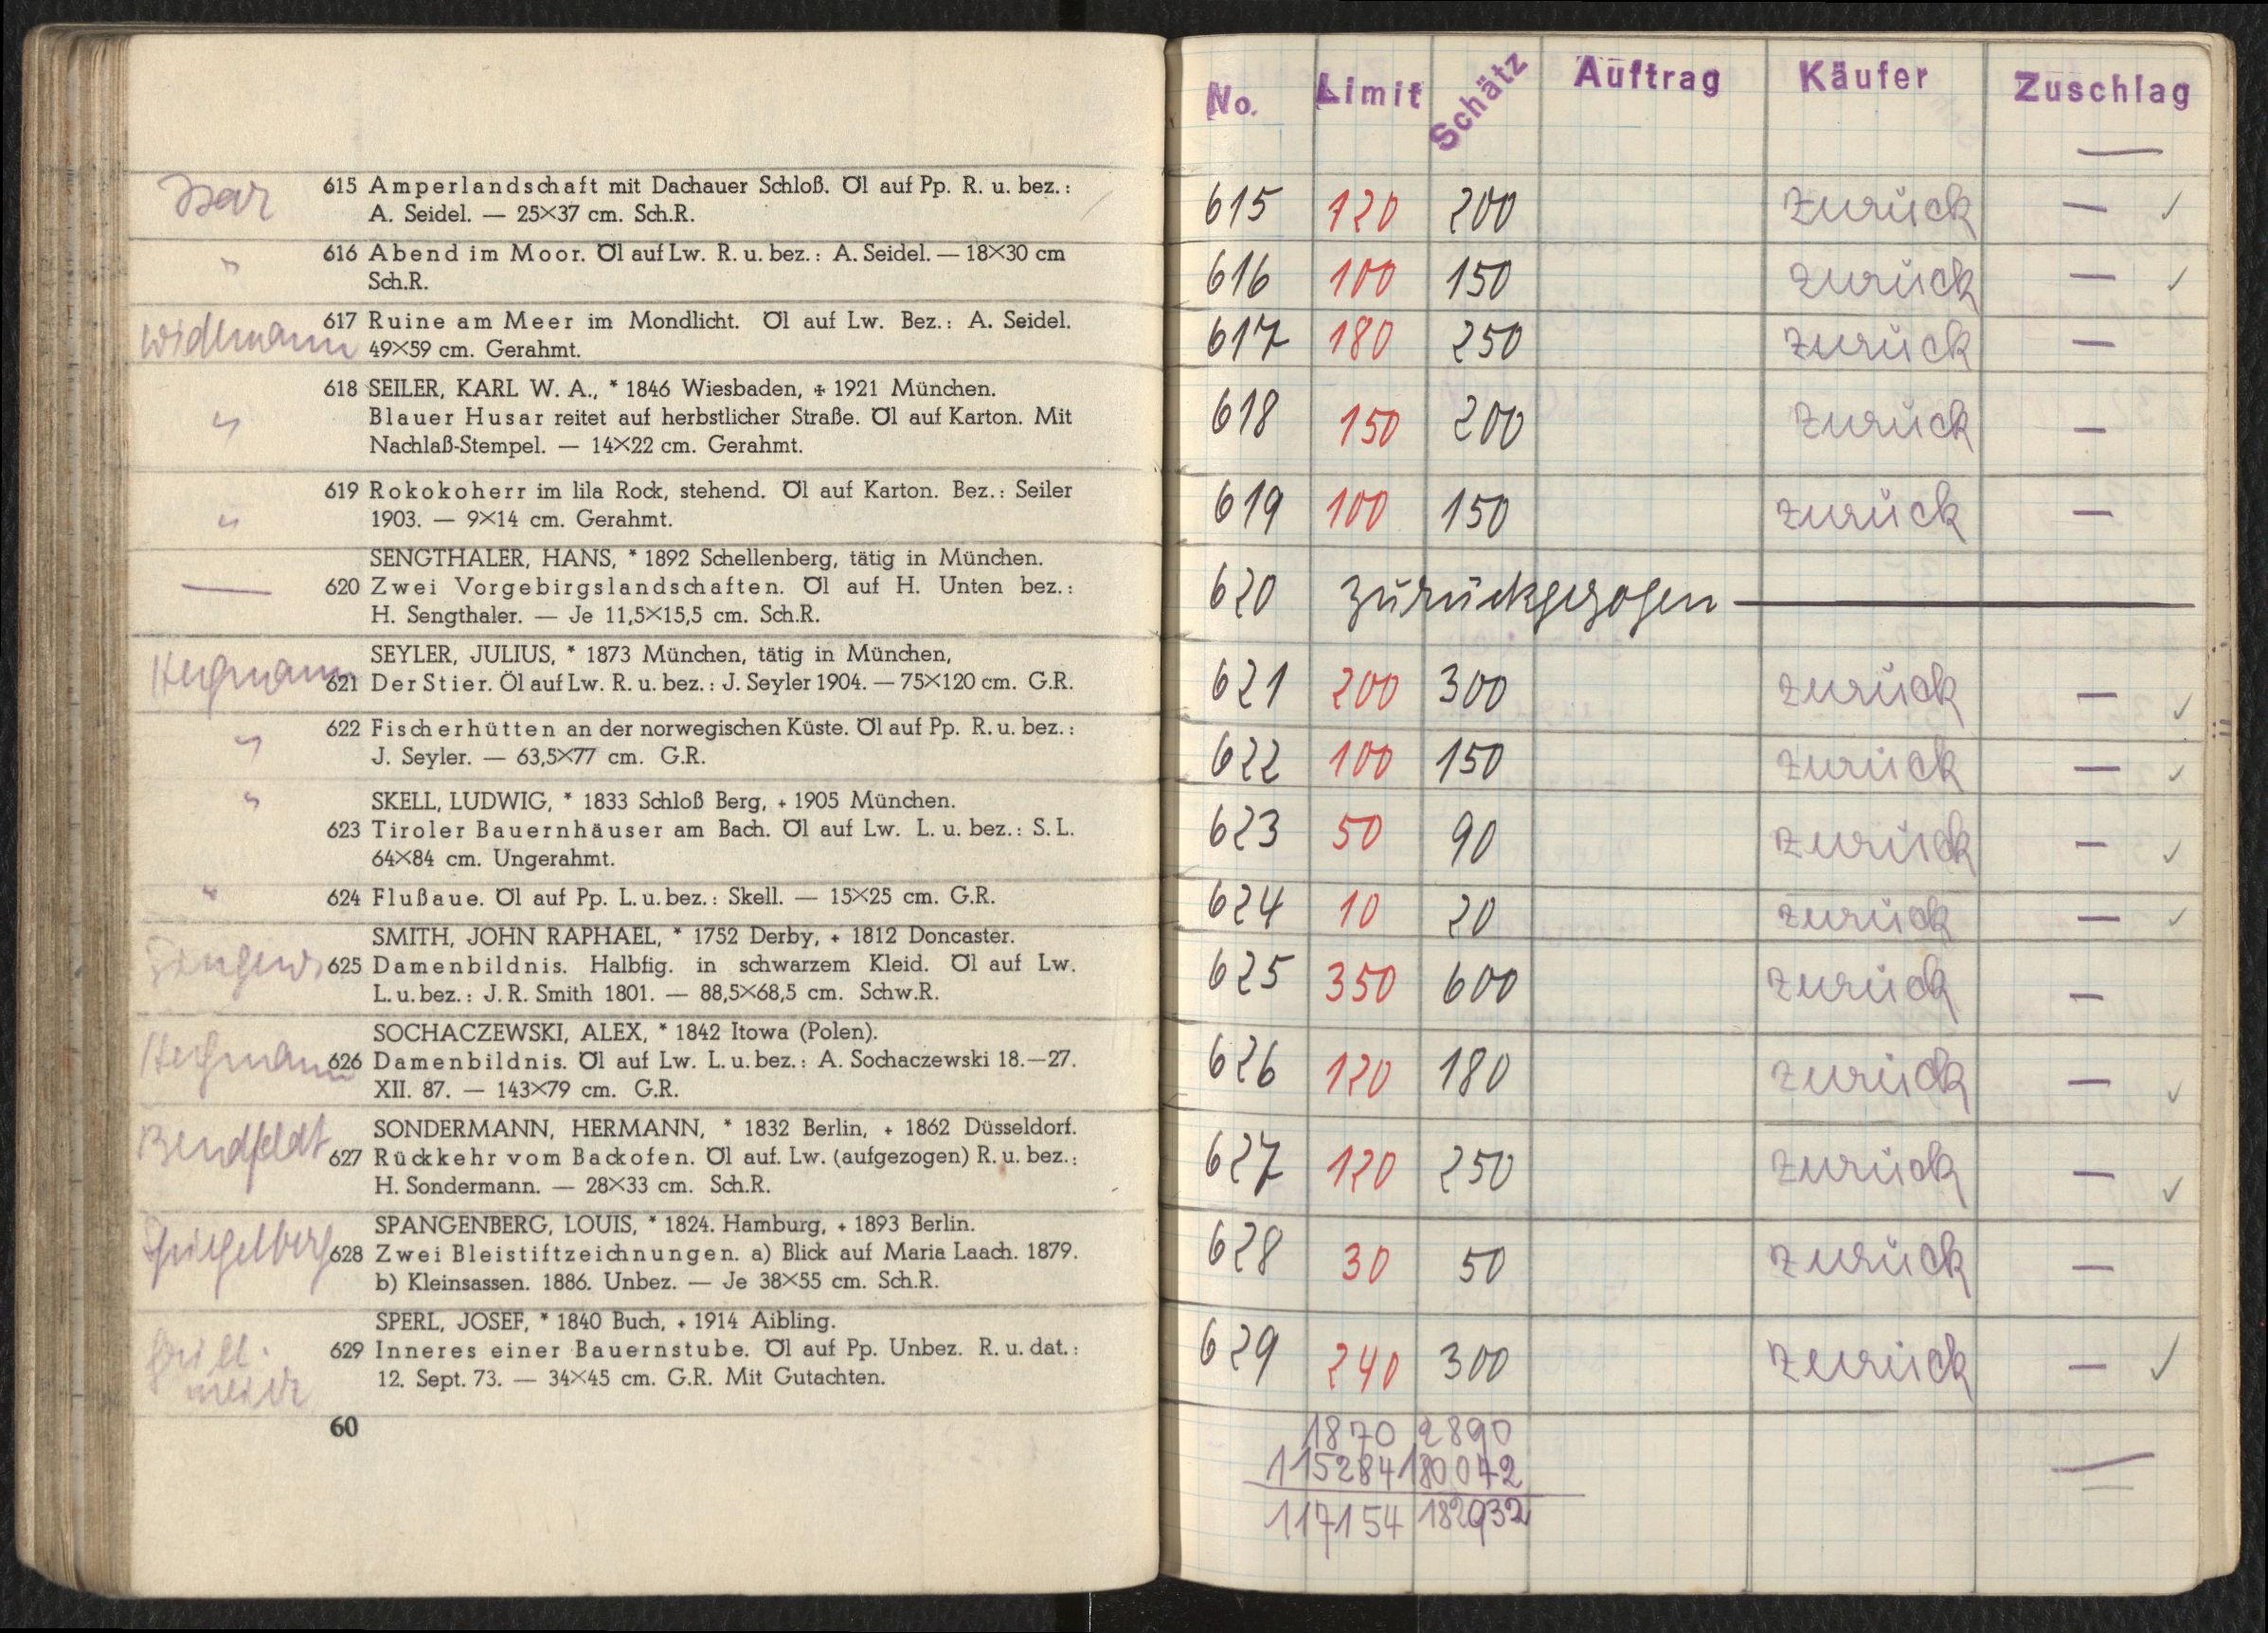 Isar
615 Amperlandschaft mit Dachauer Schloß. Öl auf Pp. R. u. bez.:
A. Seidel. — 25×37 cm. Sch.R.
"
616 Abend im Moor. Öl auf Lw. R. u. bez.: A. Seidel. — 18×30 cm
Sch.R.
Widlmann
617 Ruine am Meer im Mondlicht. Öl auf Lw. Bez.: A. Seidel.
49×59 cm. Gerahmt.
618 SEILER, KARL W. A., * 1846 Wiesbaden, + 1921 München.
"
Blauer Husar reitet auf herbstlicher Straße. Öl auf Karton. Mit
Nachlaß-Stempel. — 14×22 cm. Gerahmt.
619 Rokokoherr im lila Rock, stehend. Öl auf Karton. Bez.: Seiler
"
1903. — 9×14 cm. Gerahmt.
SENGTHALER, HANS, * 1892 Schellenberg, tätig in München.
—
620 Zwei Vorgebirgslandschaften. Öl auf H. Unten bez.:
H. Sengthaler. — Je 11,5×15,5 cm. Sch.R.
SEYLER, JULIUS, * 1873 München, tätig in München,
621 Der Stier. Öl auf Lw. R. u. bez.: J. Seyler 1904. — 75×120 cm. G.R.
622 Fischerhütten an der norwegischen Küste. Öl auf Pp. R. u. bez.:
"
J. Seyler. — 63,5×77 cm. G.R.
"
SKELL, LUDWIG, * 1833 Schloß Berg, + 1905 München.
623 Tiroler Bauernhäuser am Bach. Öl auf Lw. L. u. bez.: S. L.
64×84 cm. Ungerahmt.
"
624 Flußaue. Öl auf Pp. L. u. bez.: Skell. — 15×25 cm. G.R.
SMITH, JOHN RAPHAEL, * 1752 Derby, + 1812 Doncaster.
625 Damenbildnis. Halbfig. in schwarzem Kleid. Öl auf Lw.
L. u. bez.: J. R. Smith 1801. — 88,5×68,5 cm. Schw.R.
SOCHACZEWSKI, ALEX, * 1842 Itowa (Polen).
626 Damenbildnis. Öl auf Lw. L. u. bez.: A. Sochaczewski 18.—27.
XII. 87. — 143×79 cm. G.R.
Bendfeldt
SONDERMANN, HERMANN, * 1832 Berlin, + 1862 Düsseldorf.
627 Rückkehr vom Backofen. Öl auf. Lw. (aufgezogen) R. u. bez.:
H. Sondermann. — 28×33 cm. Sch.R.
Spiegelberg
SPANGENBERG, LOUIS, * 1824. Hamburg, + 1893 Berlin.
628 Zwei Bleistiftzeichnungen. a) Blick auf Maria Laach. 1879.
b) Kleinsassen. 1886. Unbez. — Je 38×55 cm. Sch.R.
SPERL, JOSEF, * 1840 Buch, + 1914 Aibling.
629 Inneres einer Bauernstube. Öl auf Pp. Unbez. R. u. dat.:
12. Sept. 73. — 34×45 cm. G.R. Mit Gutachten.
60
No. Limit Schätz Auftrag Käufer Zuschlag
—
615 120 200 zurück — ✓
616 100 150 zurück — ✓
617 180 250 zurück —
618 150 200 zurück —
619 100 150 zurück —
620 zurückgezogen —
621 200 300 zurück — ✓
622 100 150 zurück — ✓
623 50 90 zurück — ✓
624 10 20 zurück — ✓
625 350 600 zurück —
626 120 180 zurück — ✓
627 120 250 zurück — ✓
628 30 50 zurück —
629 240 300 zurück — ✓
1870 2890
115284 180042
117154 182932